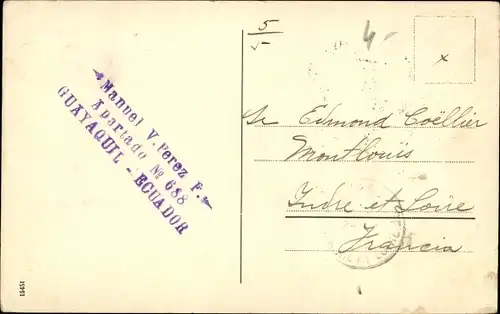 Manuel V. Perez P.
Apartado Nº 688
GUAYAQUIL - ECUADOR
5
5-
4-
x
Sr Edmond Coëllier
Montlouis
Indre et Loire
Francia
15451